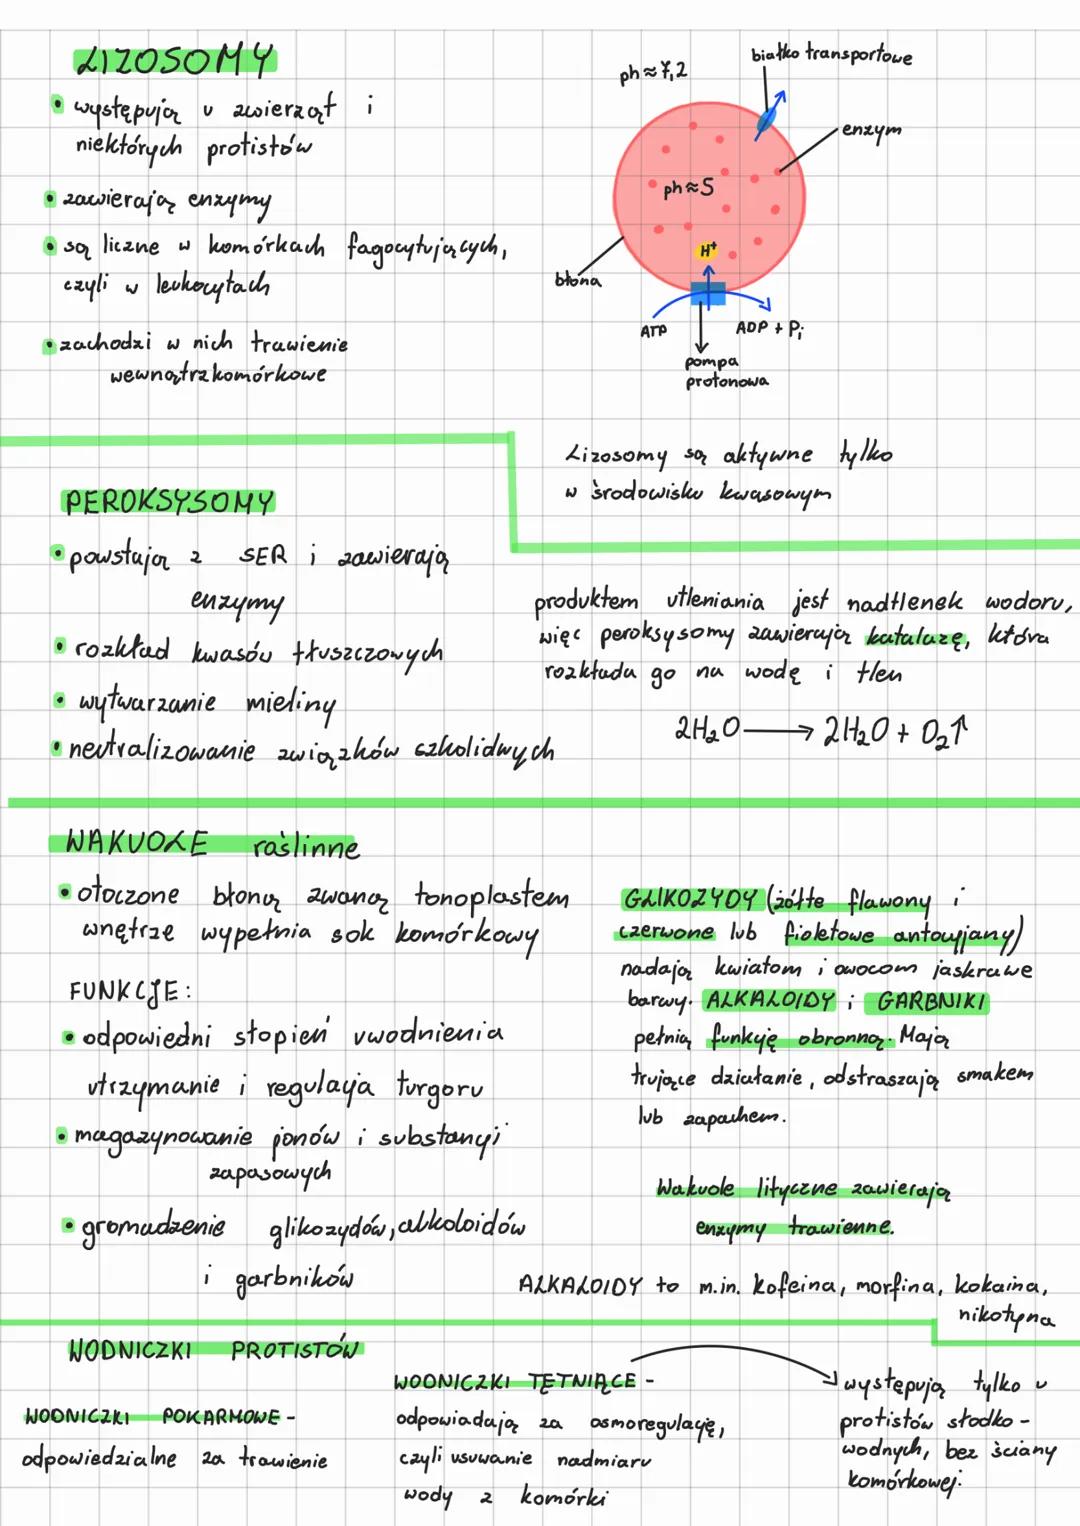 LIZOSOMY
• występują u zwierząt i
niektórych protistów
• zawierają enzymy
• są liczne w komórkach fagocytujących,
czyli w leukocytach
• zachodzi w nich trawienie
wewnątrzkomórkowe
ph≈7,2
białko transportowe
enzym
ph≈5
H+
błona
ATP
ADP + Pi
pompa
protonowa
Lizosomy są aktywne tylko
w środowisku kwasowym
PEROKSYSOMY
• powstają z SER i zawierają
enzymy
• rozkład kwasów tłuszczowych
• wytwarzanie mieliny
• neutralizowanie związków szkolidwych
produktem utleniania jest nadtlenek wodoru,
więc peroksysomy zawierają katalazę, która
rozkłada go na wodę i tlen
2H₂O ⟶ 2H₂O + O₂↑
WAKUOLE roślinne
• otoczone błoną zwaną tonoplastem
wnętrze wypełnia sok komórkowy
FUNKCJE:
• odpowiedni stopień uwodnienia
utrzymanie i regulacja turgoru
• magazynowanie jonów i substancji
zapasowych
• gromadzenie glikozydów, alkoloidów
i garbników
GLIKOZYDY (żółte flawony i
czerwone lub fioletowe antocyjany)
nadają kwiatom i owocom jaskrawe
barwy. ALKALOIDY i GARBNIKI
pełnią funkcję obronną. Mają
trujące działanie, odstraszają smakem
lub zapachem.
Wakuole lityczne zawierają
enzymy trawienne.
ALKALOIDY to m.in. kofeina, morfina, kokaina,
nikotyna
WODNICZKI PROTISTÓW
WODNICZKI POKARMOWE -
odpowiedzialne za trawienie
WODNICZKI TĘTNIĄCE -
odpowiadają za osmoregulację,
czyli usuwanie nadmiaru
wody z komórki
występują tylko u
protistów słodko-
wodnych, bez ściany
komórkowej.